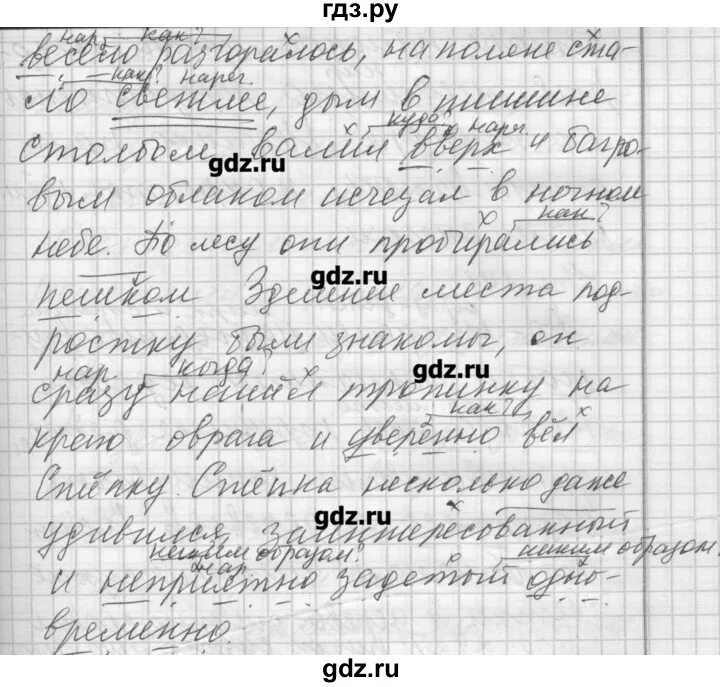 гдз.ру
нар. как?
весело разгоралось, на поляне ста-
как? нареч.
ло светлее, дым в тишине
куда? нареч.
столбом валил вверх и багро-
gdz.ru
gdz.ru
вым облаком исчезал в ночном
как?
небе. По лесу они пробирались
gdz.ru
пешком. Здешние места под-
ростку были знакомы, он
нар. когда?
gdz.ru
сразу нашёл тропинку на
как?
краю оврага и уверенно вёл
Стёпку. Стёпка несколько даже
gdz.ru
удивился, заинтересованный
каким образом? каким образом?
нар.
и неприятно задетый одно-
временно.
gdz.ru
gdz.ru